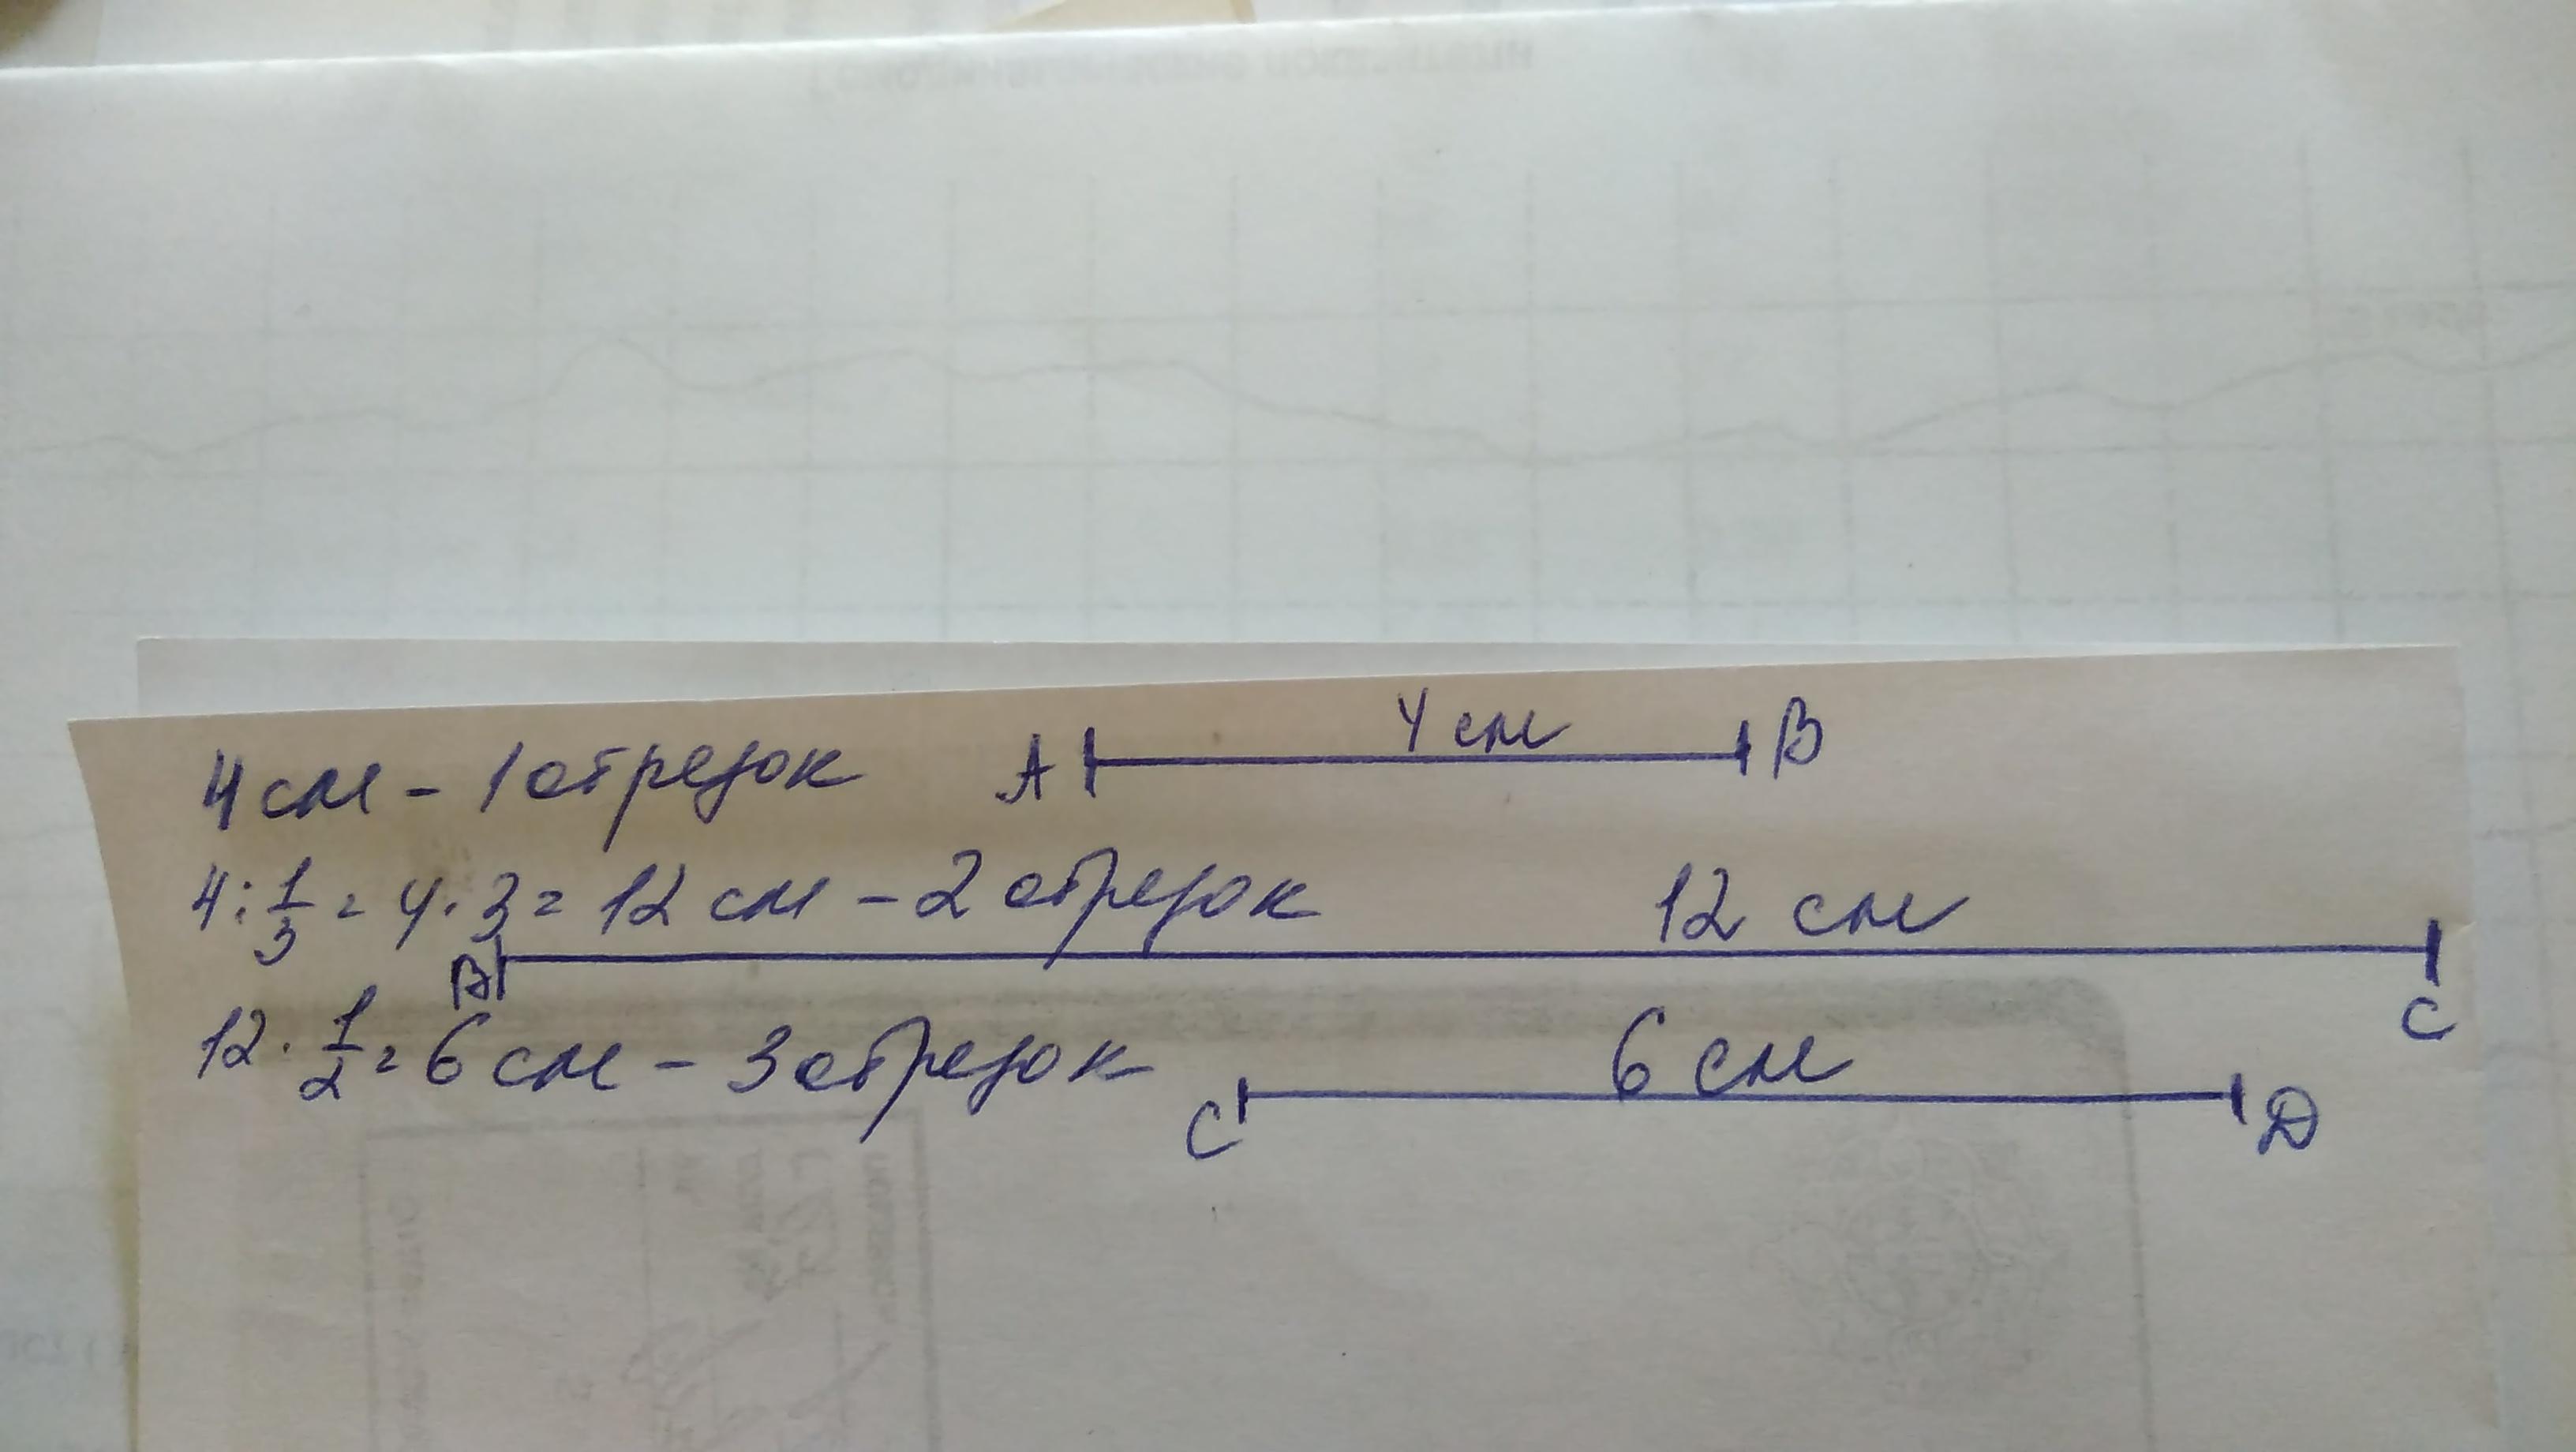 4 см - 1 отрезок A 4 см B
4 : 1/3 = 4 · 3 = 12 см - 2 отрезок 12 см
B C
12 · 1/2 = 6 см - 3 отрезок 6 см
C D